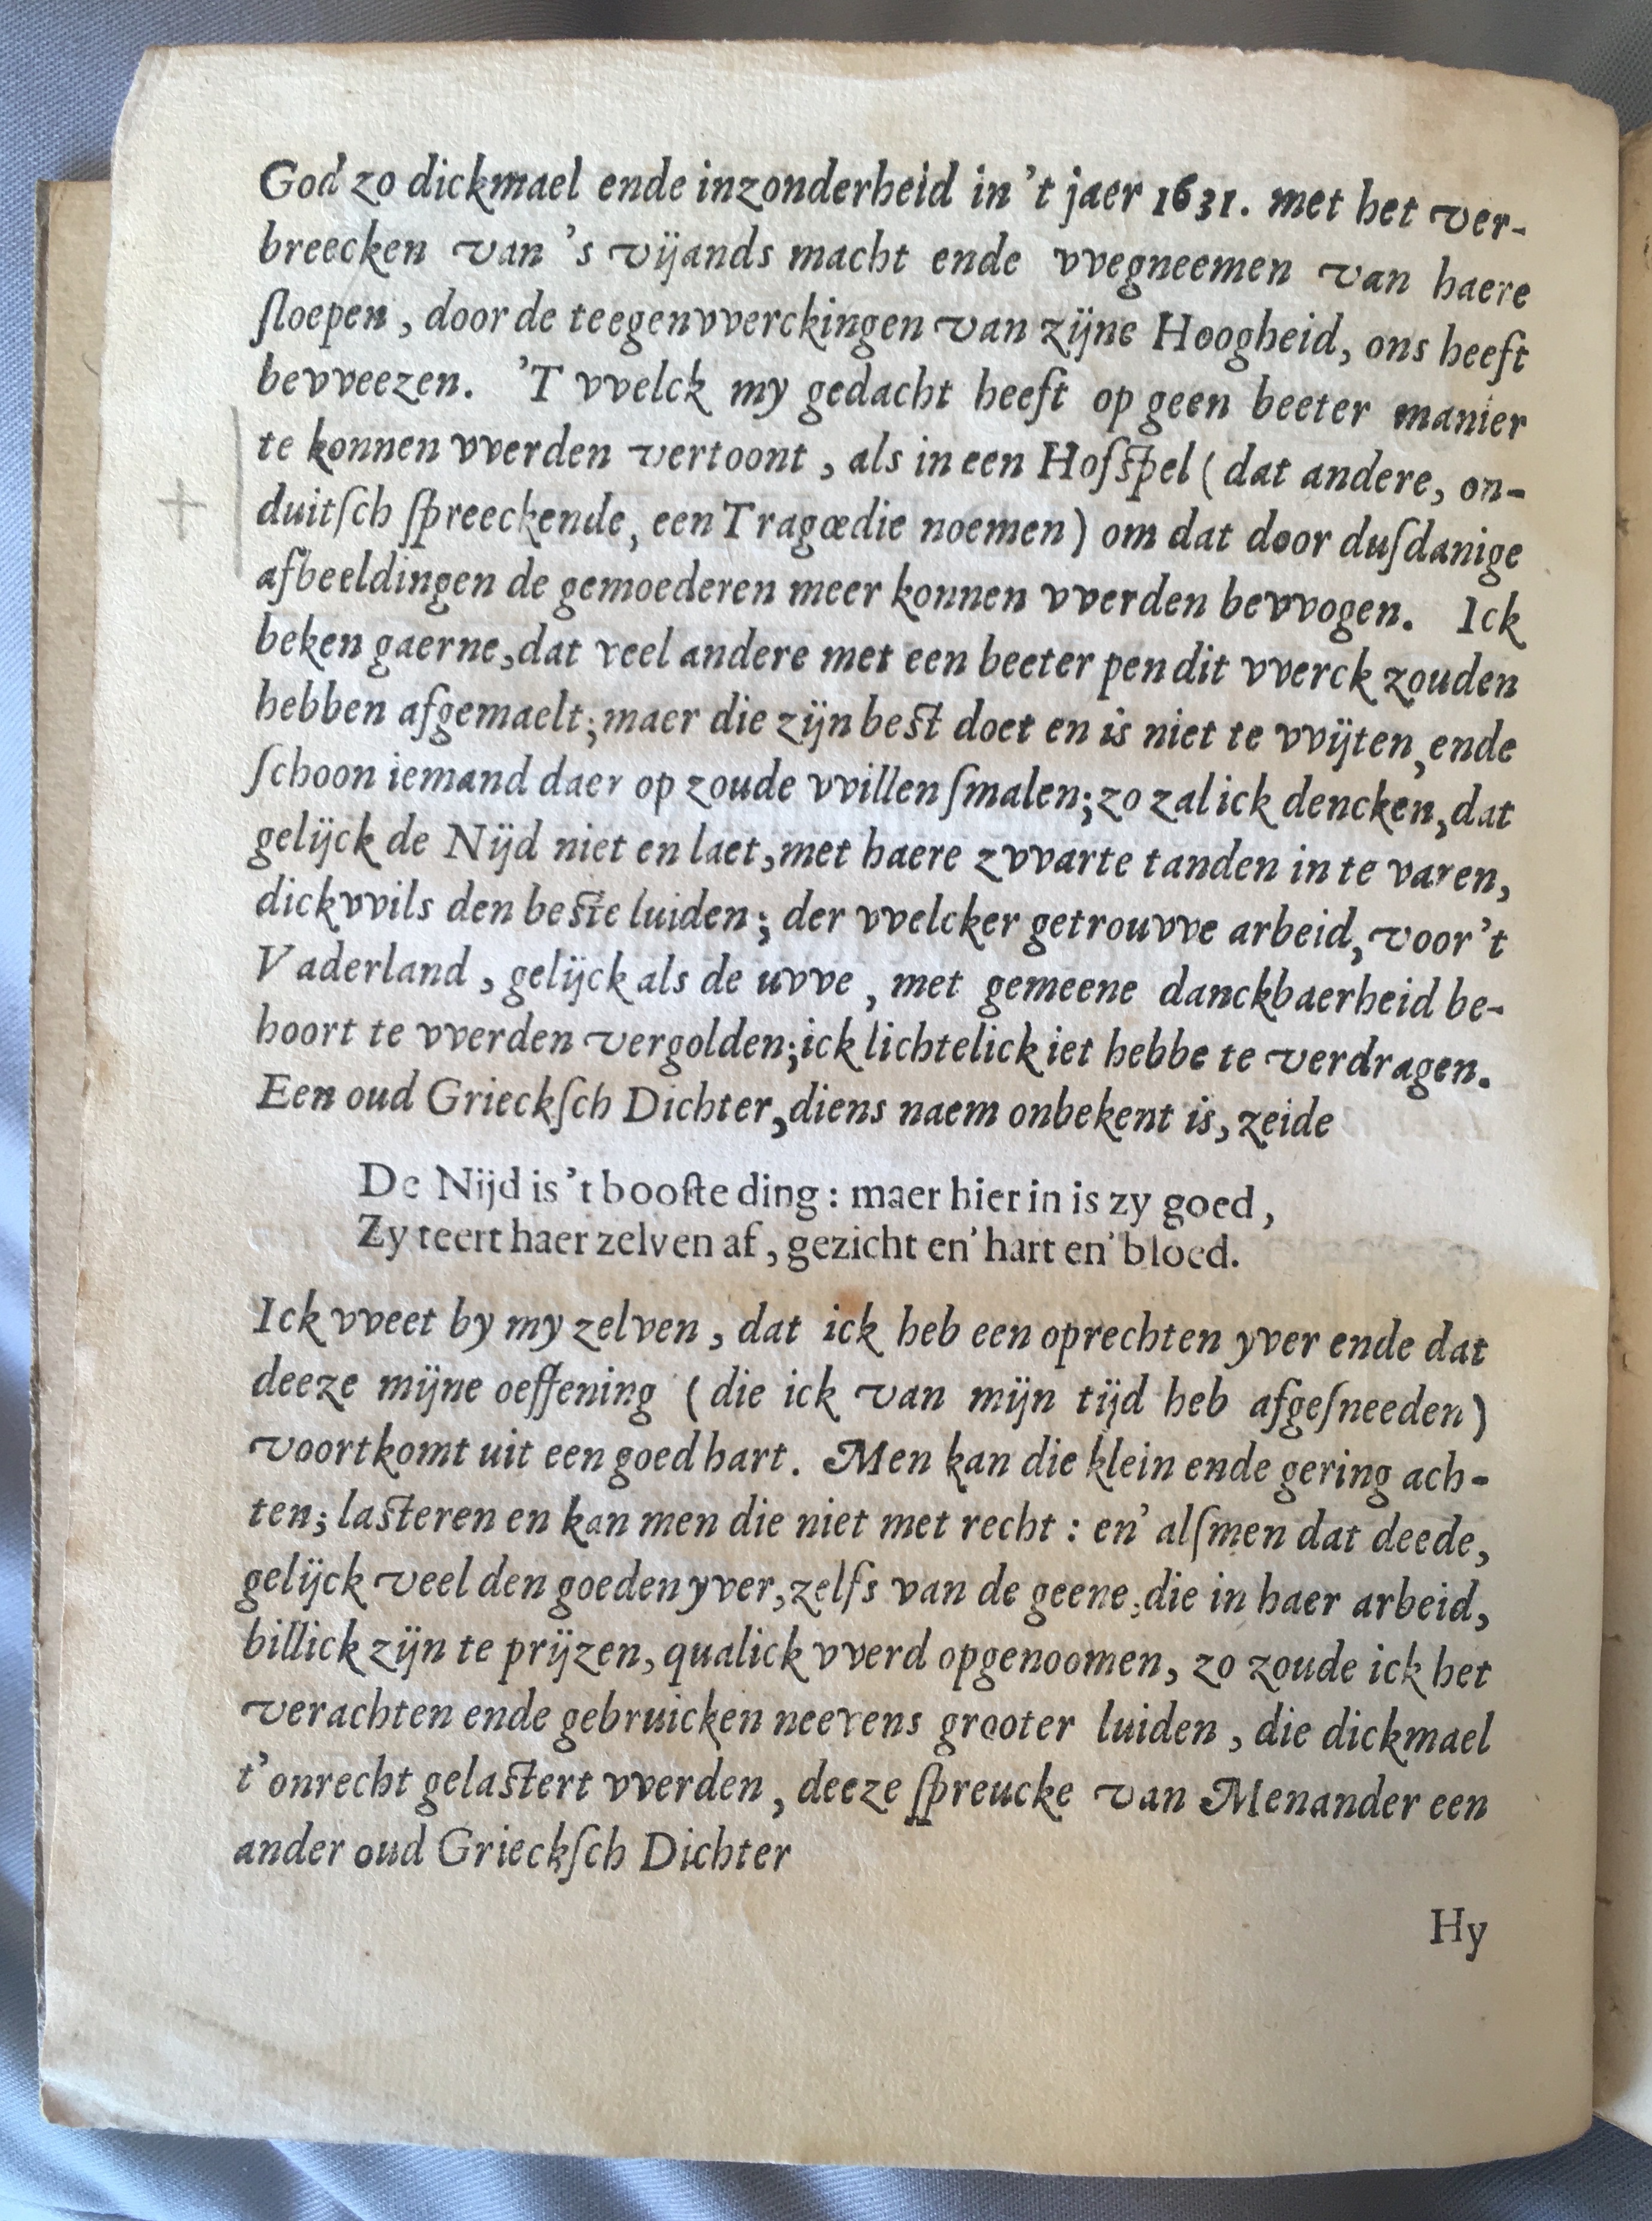 God zo dickmael ende inzonderheid in 't jaer 1631. met het ver-
breecken van 's vijands macht ende vvegneemen van haere
ſloepen, door de teegenvverckingen van zijne Hoogheid, ons heeft
bevveezen. 'T vvelck my gedacht heeft op geen beeter manier
te konnen vverden vertoont, als in een Hofſpel (dat andere, on-
duitſch ſpreeckende, een Tragœdie noemen) om dat door duſdanige
afbeeldingen de gemoederen meer konnen vverden bevvogen. Ick
beken gaerne, dat veel andere met een beeter pen dit vverck zouden
hebben afgemaelt; maer die zijn beſt doet en is niet te vvijten, ende
ſchoon iemand daer op zoude vvillen ſmalen; zo zal ick dencken, dat
gelijck de Nijd niet en laet, met haere zvvarte tanden in te varen,
dickvvils den beſte luiden; der vvelcker getrouvve arbeid, voor 't
Vaderland, gelijck als de uvve, met gemeene danckbaerheid be-
hoort te vverden vergolden; ick lichtelick iet hebbe te verdragen.
Een oud Grieckſch Dichter, diens naem onbekent is, zeide
De Nijd is 't booſte ding: maer hier in is zy goed,
Zy teert haer zelven af, gezicht en' hart en' bloed.
Ick vveet by my zelven, dat ick heb een oprechten yver ende dat
deeze mijne oeffening (die ick van mijn tijd heb afgeſneeden)
voortkomt uit een goed hart. Men kan die klein ende gering ach-
ten; laſteren en kan men die niet met recht: en' alſmen dat deede,
gelijck veel den goeden yver, zelfs van de geene, die in haer arbeid,
billick zijn te prijzen, qualick vverd opgenoomen, zo zoude ick het
verachten ende gebruicken neevens grooter luiden, die dickmael
t'onrecht gelaſtert vverden, deeze ſpreucke van Menander een
ander oud Grieckſch Dichter
Hy